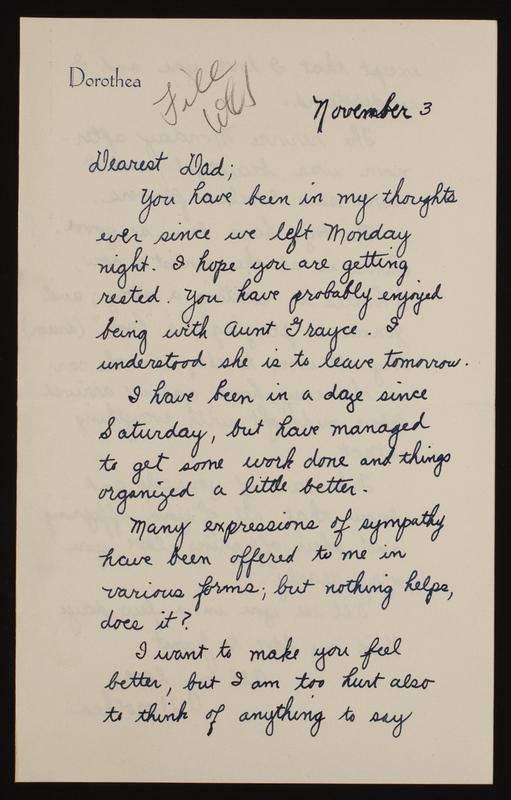 Dorothea
File
November 3
Dearest Dad;
You have been in my thoughts
ever since we left Monday
night. I hope you are getting
rested. You have probably enjoyed
being with Aunt Grayce. I
understood she is to leave tomorrow.
I have been in a daze since
Saturday, but have managed
to get some work done and things
organized a little better.
Many expressions of sympathy
have been offered to me in
various forms; but nothing helps,
does it?
I want to make you feel
better, but I am too hurt also
to think of anything to say